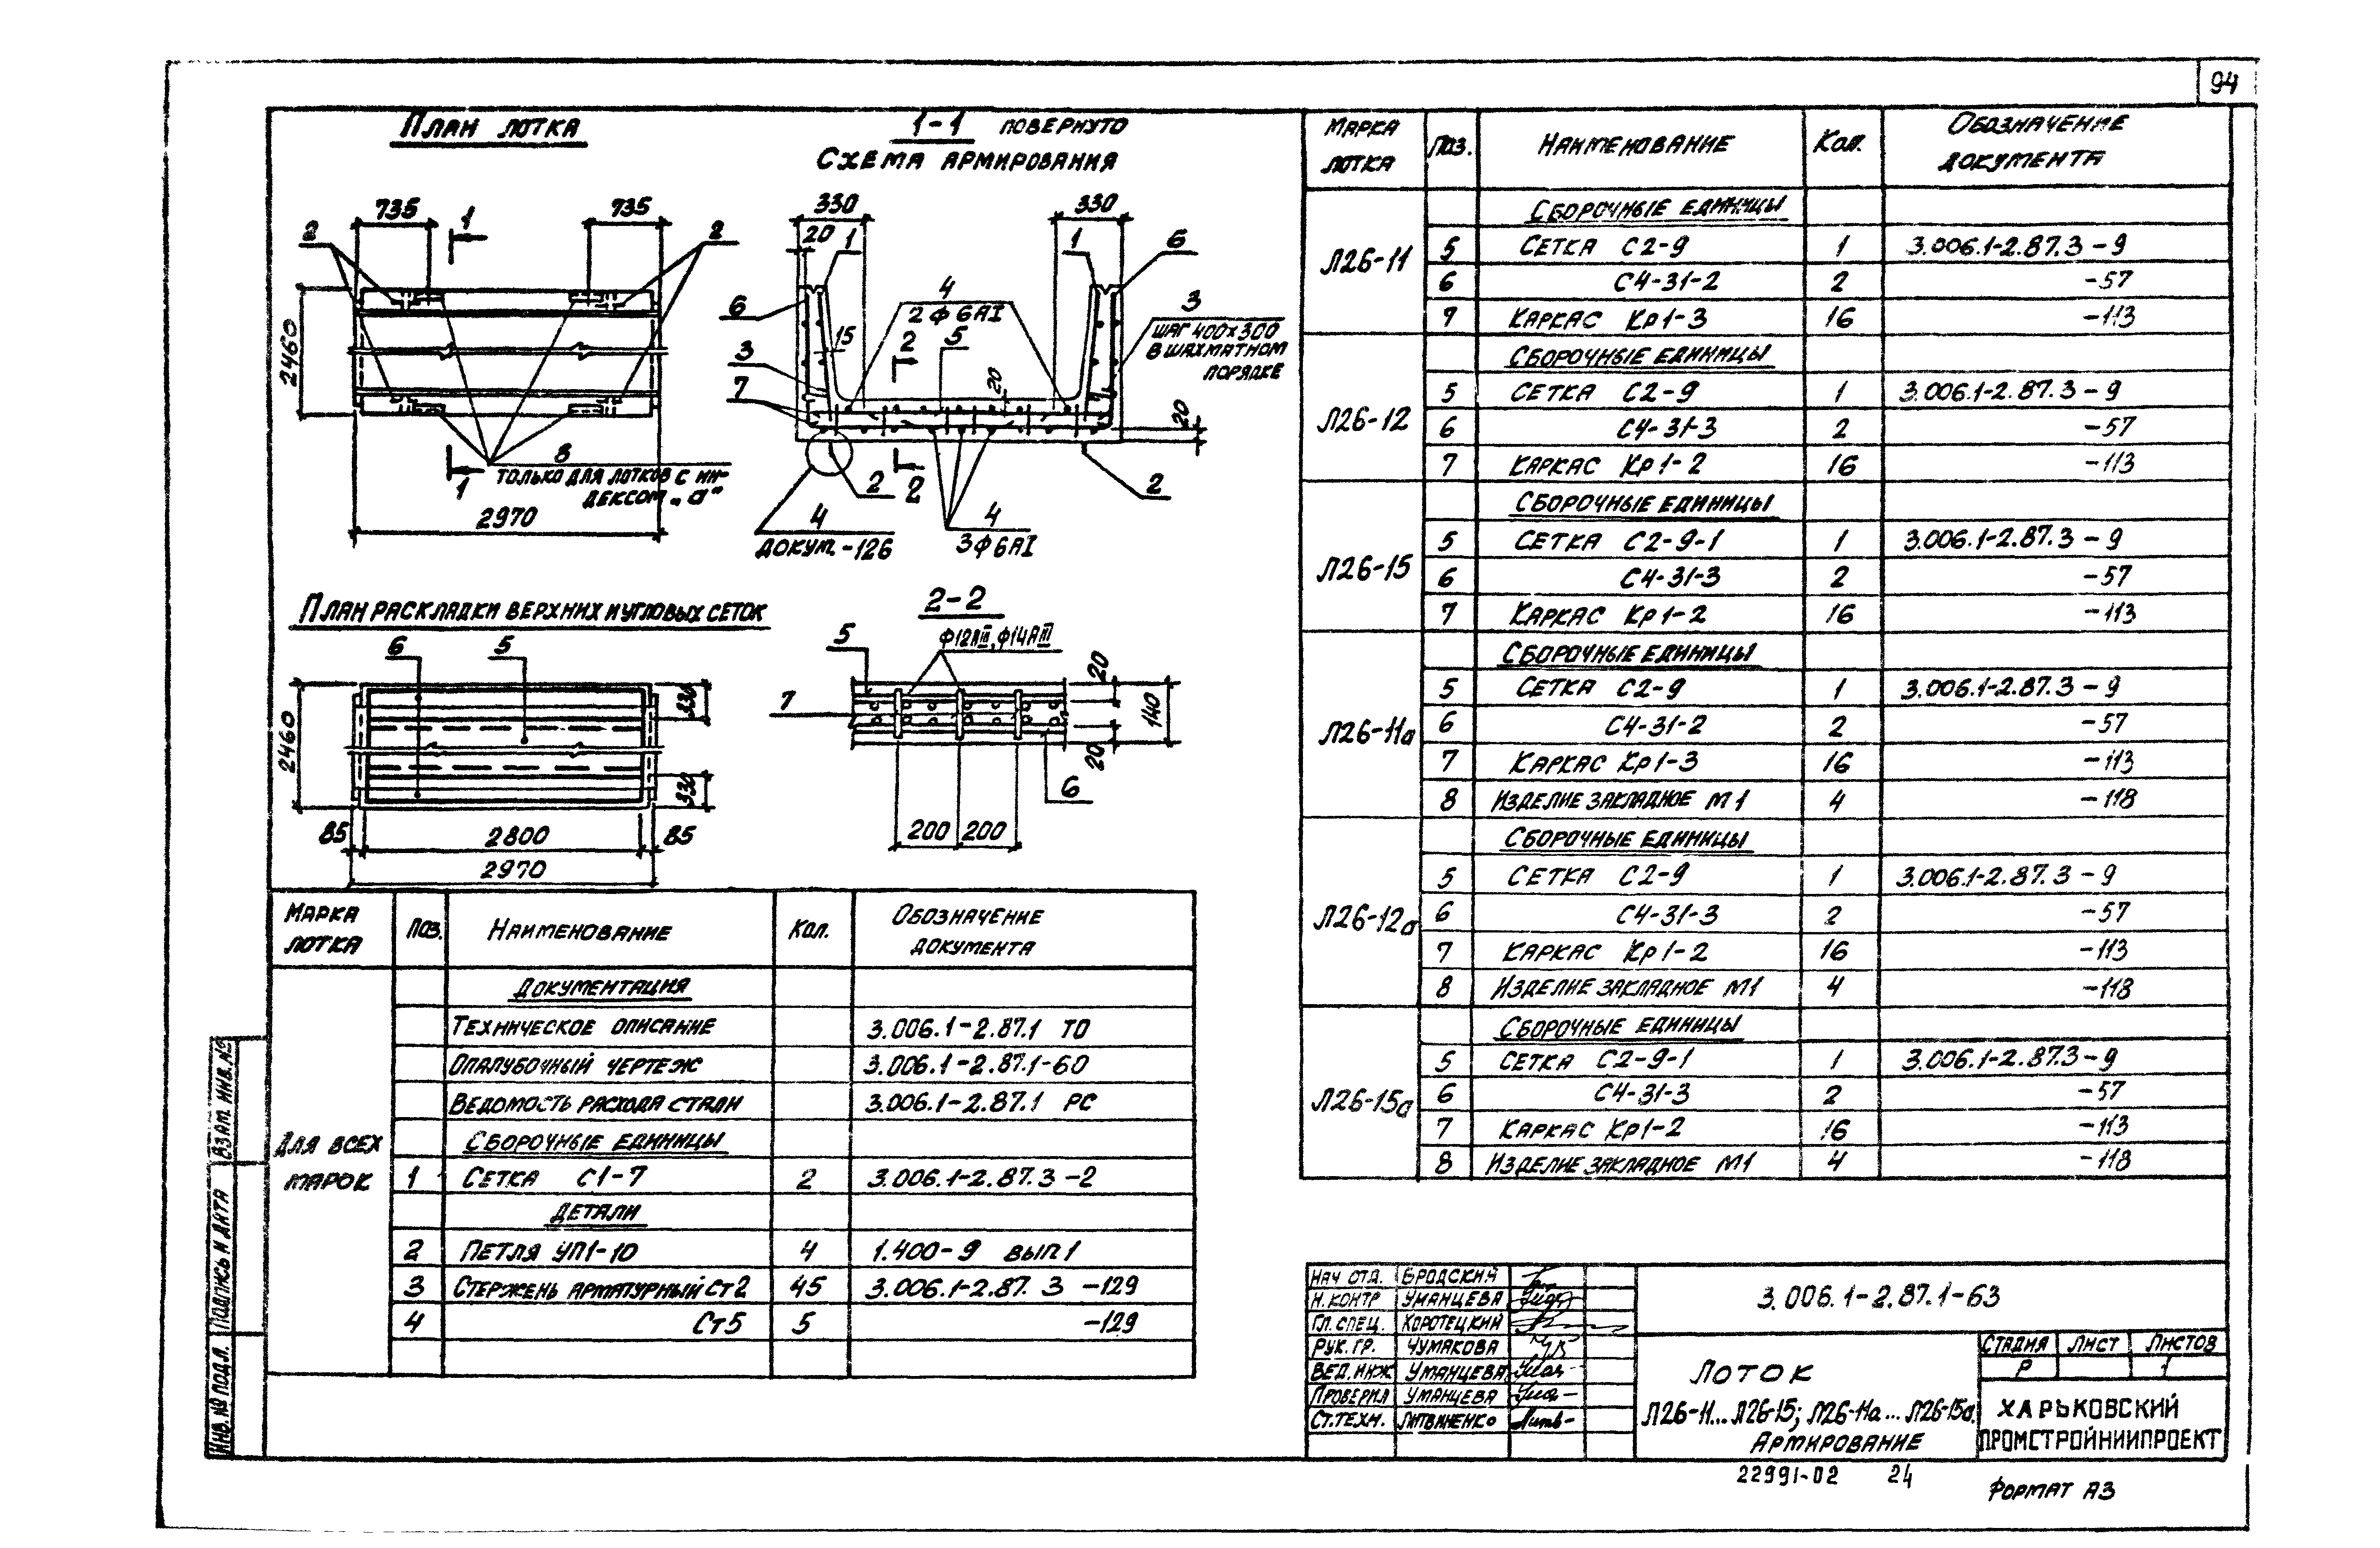 94
План лотка
735
1
735
2
2
2460
8
только для лотков с ин-
дексом „а"
1
2970
1-1 повернуто
Схема армирования
330
330
20
1
1
6
6
4
2ф6АI
3
шаг 400х300
в шахматном
порядке
15
2
5
3
7
20
20
2
2
2
4
докум. -126
4
3ф6АI
План раскладки верхних и угловых сеток
6
5
2460
330
330
85
2800
85
2970
2-2
ф12АIII, ф14АIII
5
7
20
140
20
6
200
200
Марка лотка Поз. Наименование Кол. Обозначение документа
Для всех марок
Документация
Техническое описание 3.006.1-2.87.1 ТО
Опалубочный чертеж 3.006.1-2.87.1-60
Ведомость расхода стали 3.006.1-2.87.1 РС
Сборочные единицы
1 Сетка С1-7 2 3.006.1-2.87.3-2
Детали
2 Петля УП1-10 4 1.400-9 вып 1
3 Стержень арматурный Ст2 45 3.006.1-2.87.3 -129
4 Ст5 5 -129
Марка лотка Поз. Наименование Кол. Обозначение документа
Л26-11
Сборочные единицы
5 Сетка С2-9 1 3.006.1-2.87.3-9
6 С4-31-2 2 -57
7 Каркас Кр1-3 16 -113
Л26-12
Сборочные единицы
5 Сетка С2-9 1 3.006.1-2.87.3-9
6 С4-31-3 2 -57
7 Каркас Кр1-2 16 -113
Л26-15
Сборочные единицы
5 Сетка С2-9-1 1 3.006.1-2.87.3-9
6 С4-31-3 2 -57
7 Каркас Кр1-2 16 -113
Л26-11а
Сборочные единицы
5 Сетка С2-9 1 3.006.1-2.87.3-9
6 С4-31-2 2 -57
7 Каркас Кр1-3 16 -113
8 Изделие закладное М1 4 -118
Л26-12а
Сборочные единицы
5 Сетка С2-9 1 3.006.1-2.87.3-9
6 С4-31-3 2 -57
7 Каркас Кр1-2 16 -113
8 Изделие закладное М1 4 -118
Л26-15а
Сборочные единицы
5 Сетка С2-9-1 1 3.006.1-2.87.3-9
6 С4-31-3 2 -57
7 Каркас Кр1-2 16 -113
8 Изделие закладное М1 4 -118
Нач отд. Бродский
Н.контр Уманцева
Гл. спец. Коротецкий
Рук. гр. Чумакова
Вед. инж Уманцева
Проверил Уманцева
Ст. техн. Литвиненко
3.006.1-2.87.1-63
Лоток
Л26-11...Л26-15; Л26-11а...Л26-15а.
Армирование
Стадия Лист Листов
Р 1
ХАРЬКОВСКИЙ
ПРОМСТРОЙНИИПРОЕКТ
22991-02 24
Формат А3
Взам. инв. №
Подпись и дата
Инв. № подл.